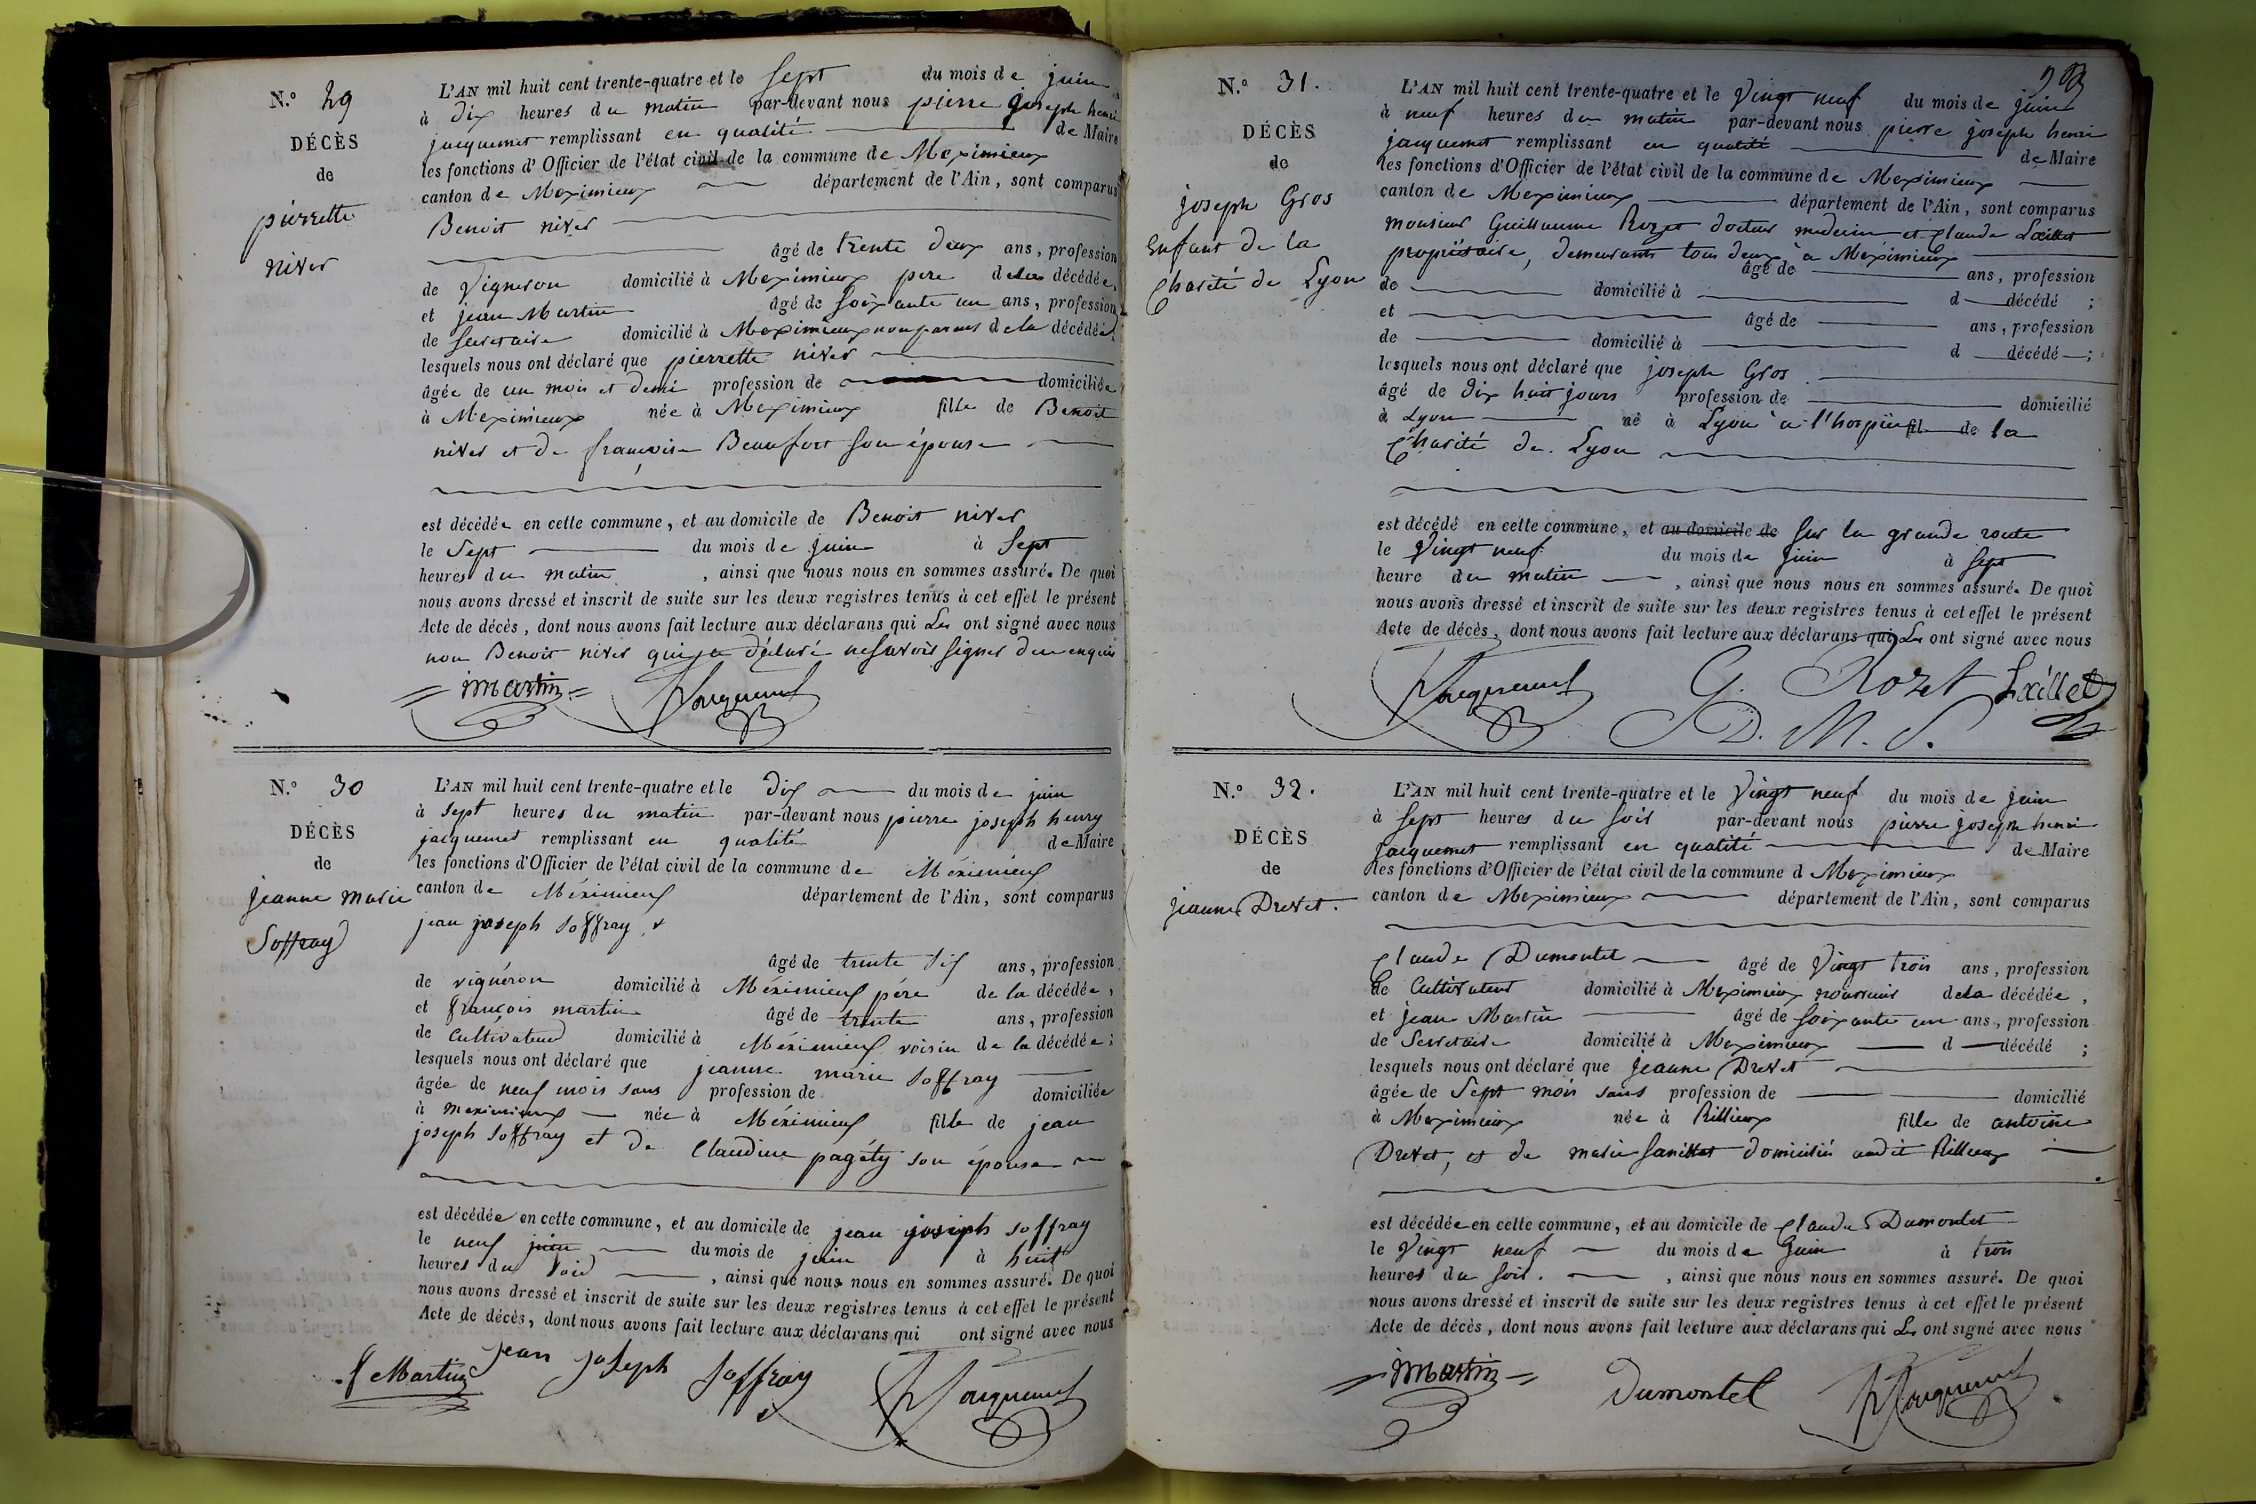 N.º 29
DÉCÈS
de
pierrette
niver
L'AN mil huit cent trente-quatre et le Sept du mois de juin
à Dix heures du matin par-devant nous pierre joseph henri
jacquemet remplissant en qualité de Maire
les fonctions d'Officier de l'état civil de la commune de Meximieux
canton de Meximieux département de l'Ain, sont comparus
Benoit niver
âgé de trente deux ans, profession
de Vigneron domicilié à Meximieux pere dela décédée,
et jean Martin âgé de Soixante un ans, profession
de Secretaire domicilié à Meximieux non parens dela décédée;
lesquels nous ont déclaré que pierrette niver
âgée de un mois et demi profession de domiciliée
à Meximieux née à Meximieux fille de Benoit
niver et de françoise Beaufort son épouse
est décédée en cette commune, et au domicile de Benoit niver
le Sept du mois de juin à Sept
heures du matin, ainsi que nous nous en sommes assuré. De quoi
nous avons dressé et inscrit de suite sur les deux registres tenus à cet effet le présent
Acte de décès, dont nous avons fait lecture aux déclarans qui Les ont signé avec nous
non Benoit niver qui a déclaré ne savoir signer de ce enquis
Martin Jacquemet
N.º 30
DÉCÈS
de
jeanne marie
Soffray
L'AN mil huit cent trente-quatre et le dix du mois de juin
à sept heures du matin par-devant nous pierre joseph henry
jacquemet remplissant en qualité de Maire
les fonctions d'Officier de l'état civil de la commune de Méximieux
canton de Méximieux département de l'Ain, sont comparus
jean joseph soffray
âgé de trente six ans, profession
de vignéron domicilié à Méximieux pére de la décédée,
et françois martin âgé de trente ans, profession
de Cultivateur domicilié à Méximieux voisin de la décédée;
lesquels nous ont déclaré que jeanne marie soffray
âgée de neuf mois sans profession de domiciliée
à meximieux née à Méximieux fille de jean
joseph soffray et de Claudine pagéty son épouse
est décédée en cette commune, et au domicile de jean joseph soffray
le neuf juin du mois de juin à huit
heures du soir, ainsi que nous nous en sommes assuré. De quoi
nous avons dressé et inscrit de suite sur les deux registres tenus à cet effet le présent
Acte de décès, dont nous avons fait lecture aux déclarans qui ont signé avec nous
f Martin jean joseph Soffray Jacquemet
N.º 31.
DÉCÈS
de
joseph Gros
Enfant de la
Charité de Lyon
L'AN mil huit cent trente-quatre et le Vingt neuf du mois de juin
à neuf heures du matin par-devant nous pierre joseph henri
jacquemet remplissant en qualité de Maire
les fonctions d'Officier de l'état civil de la commune de Meximieux
canton de Meximieux département de l'Ain, sont comparus
monsieur Guillaume Rozet docteur medecin et Claude Lxillet
propriétaire, demeurants tous deux à Meximieux
âgé de ans, profession
de domicilié à d décédé ;
et âgé de ans, profession
de domicilié à d décédé ;
lesquels nous ont déclaré que joseph Gros
âgé de dix huit jours profession de domicilié
à Lyon né à Lyon à l'hospice fil de la
Charité de Lyon
est décédé en cette commune, et au domicile de Sur la grande route
le Vingt neuf du mois de juin à Sept
heure du matin, ainsi que nous nous en sommes assuré. De quoi
nous avons dressé et inscrit de suite sur les deux registres tenus à cet effet le présent
Acte de décès, dont nous avons fait lecture aux déclarans qui Les ont signé avec nous
Jacquemet G. Rozet Lxillet
D. M.
N.º 32.
DÉCÈS
de
jeanne Drevet.
L'AN mil huit cent trente-quatre et le Vingt neuf du mois de juin
à Sept heures du soir par-devant nous pierre joseph henri
Jacquemet remplissant en qualité de Maire
les fonctions d'Officier de l'état civil de la commune d Meximieux
canton de Meximieux département de l'Ain, sont comparus
Claude Dumontel âgé de Vingt trois ans, profession
de Cultivateur domicilié à Meximieux dela décédée,
et jean Martin âgé de soixante un ans, profession
de Secretaire domicilié à Meximieux d décédé ;
lesquels nous ont déclaré que jeanne Drevet
âgée de Sept mois sans profession de domicilié
à Meximieux née à Rillieux fille de antoine
Drevet, et de marie domiciliés audit Rillieux
est décédée en cette commune, et au domicile de Claude Dumontel
le Vingt neuf du mois de Juin à trois
heures du soir., ainsi que nous nous en sommes assuré. De quoi
nous avons dressé et inscrit de suite sur les deux registres tenus à cet effet le présent
Acte de décès, dont nous avons fait lecture aux déclarans qui Les ont signé avec nous
Martin Dumontel Jacquemet